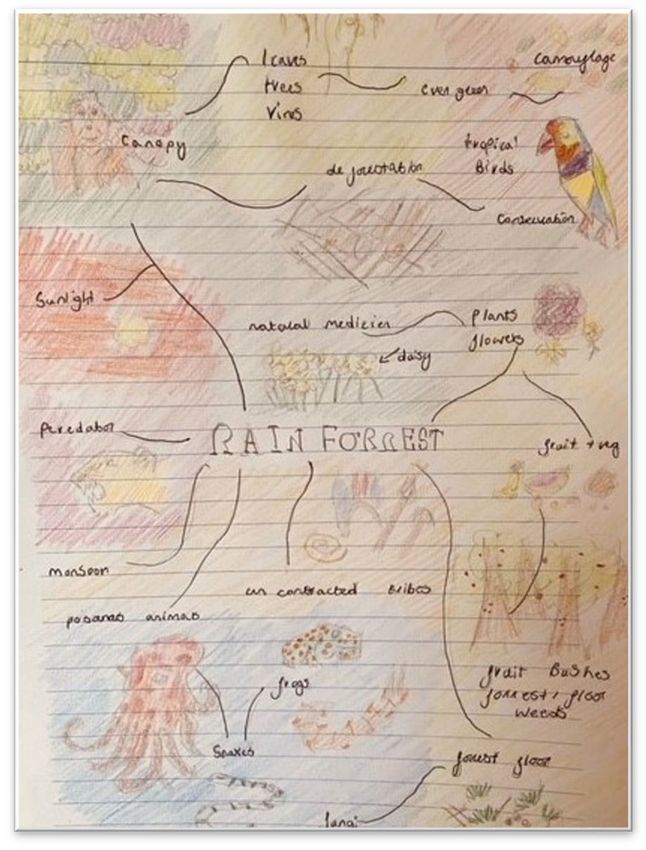 leaves
trees
vines
ever green
camouflage
Canopy
tropical
Birds
deforestation
Conservation
Sunlight
natural medicien
Plants
flowers
daisy
peredator
RAIN FORREST
fruit + veg
monsoon
un contracted tribes
posanas animas
fruit Bushes
forrest, floor
weeds
frogs
Snakes
forest floor
fungi